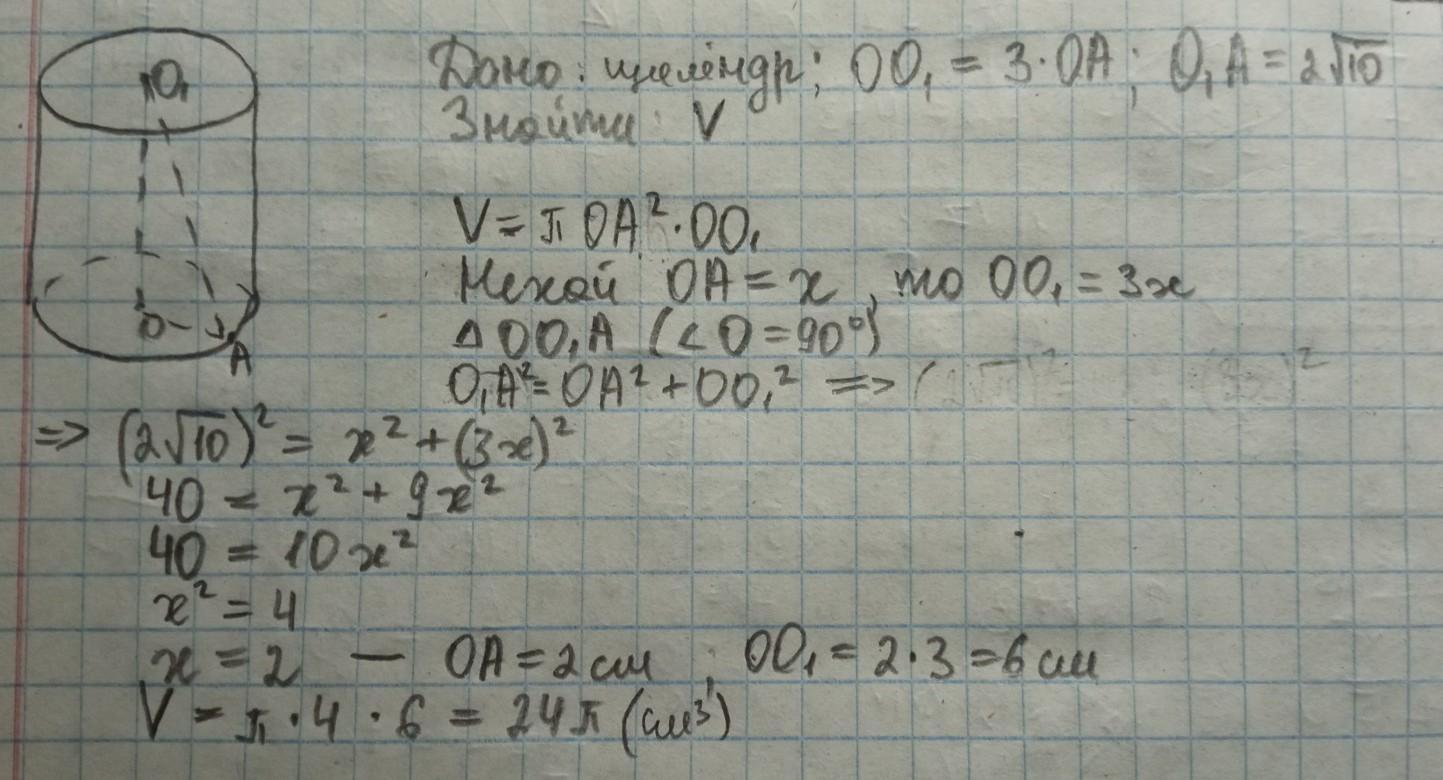 O₁
Дано: циліндр; OO₁ = 3·OA; O₁A = 2√10
Знайти: V
V = π OA²·OO₁
Нехай OA = x, то OO₁ = 3x
O
A
Δ OO₁A (∠O = 90°)
O₁A² = OA² + OO₁² =>
=> (2√10)² = x² + (3x)²
40 = x² + 9x²
40 = 10x²
x² = 4
x = 2 — OA = 2 см, OO₁ = 2·3 = 6 см
V = π·4·6 = 24π (см³)